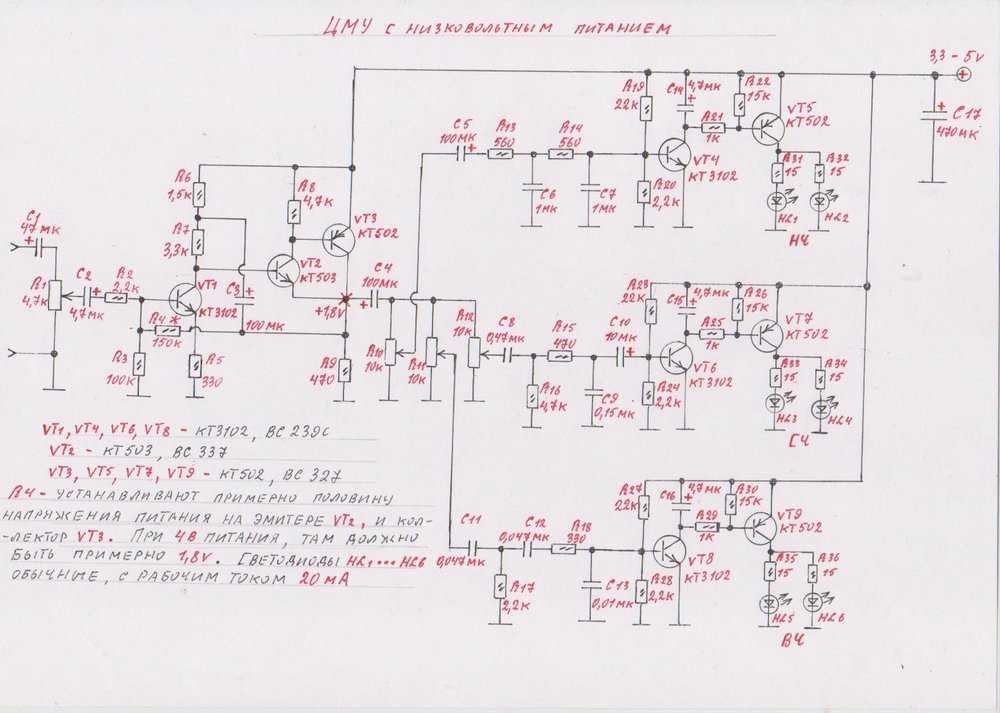 ЦМУ С НИЗКОВОЛЬТНЫМ ПИТАНИЕМ
3,3 - 5V
C17
470МК
R19
22К
C14
4,7МК
R22
15К
R21
1К
VT5
КТ502
VT4
КТ3102
R20
2,2К
R31
15
R32
15
HL1
HL2
НЧ
C5
100МК
R13
560
R14
560
C6
1МК
C7
1МК
R6
1,5К
R8
4,7К
R7
3,3К
VT3
КТ502
VT2
КТ503
C1
47МК
R1
4,7К
C2
4,7МК
R2
2,2К
VT1
КТ3102
R4*
150К
C3
100МК
R3
100К
R5
330
+1,8V
R9
470
C4
100МК
R10
10К
R11
10К
R12
10К
C8
0,47МК
R15
470
C10
10МК
R16
4,7К
C9
0,15МК
R23
22К
C15
4,7МК
R26
15К
R25
1К
VT7
КТ502
VT6
КТ3102
R24
2,2К
R33
15
R34
15
HL3
HL4
СЧ
C11
0,047МК
C12
0,047МК
R18
330
R17
2,2К
C13
0,01МК
R27
22К
C16
4,7МК
R30
15К
R29
1К
VT9
КТ502
VT8
КТ3102
R28
2,2К
R35
15
R36
15
HL5
HL6
ВЧ
VT1, VT4, VT6, VT8 - КТ3102, ВС 239С
VT2 - КТ503, ВС 337
VT3, VT5, VT7, VT9 - КТ502, ВС 327
R4 - УСТАНАВЛИВАЮТ ПРИМЕРНО ПОЛОВИНУ
НАПРЯЖЕНИЯ ПИТАНИЯ НА ЭМИТЕРЕ VT2, И КОЛ-
-ЛЕКТОР VT3. ПРИ 4В ПИТАНИЯ, ТАМ ДОЛЖНО
БЫТЬ ПРИМЕРНО 1,8V. СВЕТОДИОДЫ HL1...HL6
ОБЫЧНЫЕ, С РАБОЧИМ ТОКОМ 20МА